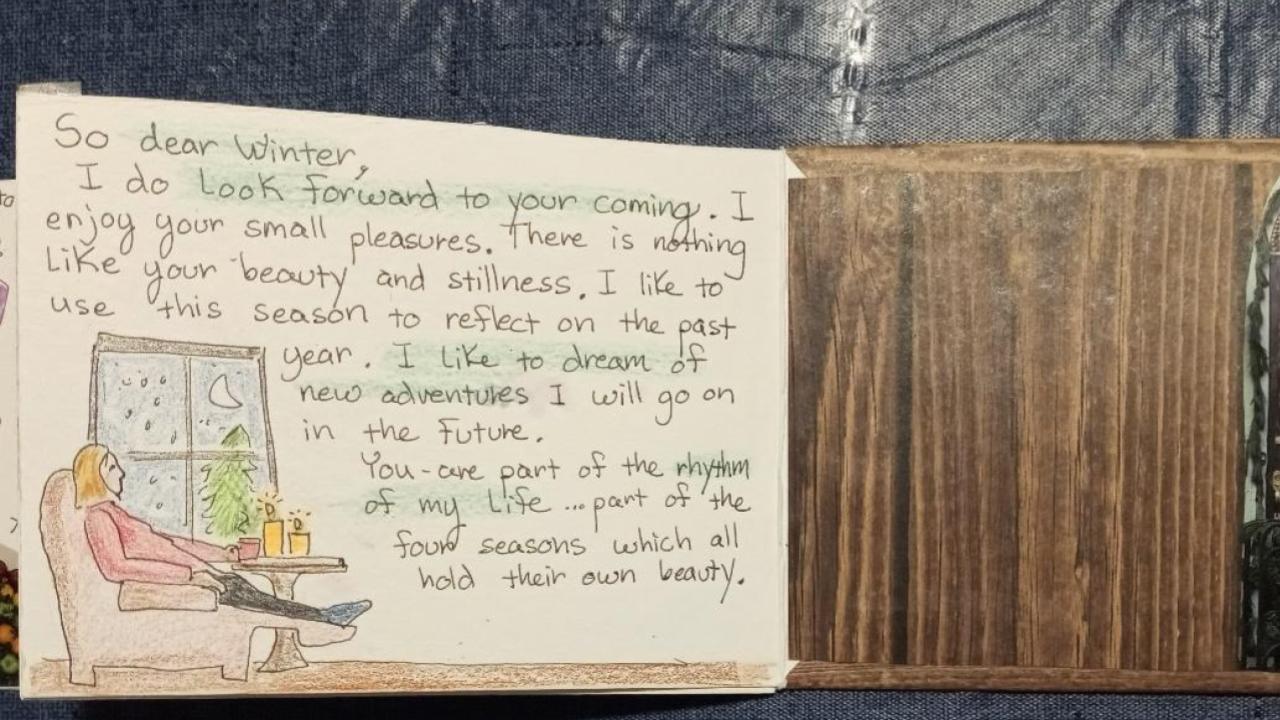 So dear Winter,
I do Look forward to your coming. I
enjoy your small pleasures. There is nothing
Like your beauty and stillness. I like to
use this season to reflect on the past
year. I like to dream of
new adventures I will go on
in the future.
You-are part of the rhythm
of my Life ... part of the
four seasons which all
hold their own beauty.